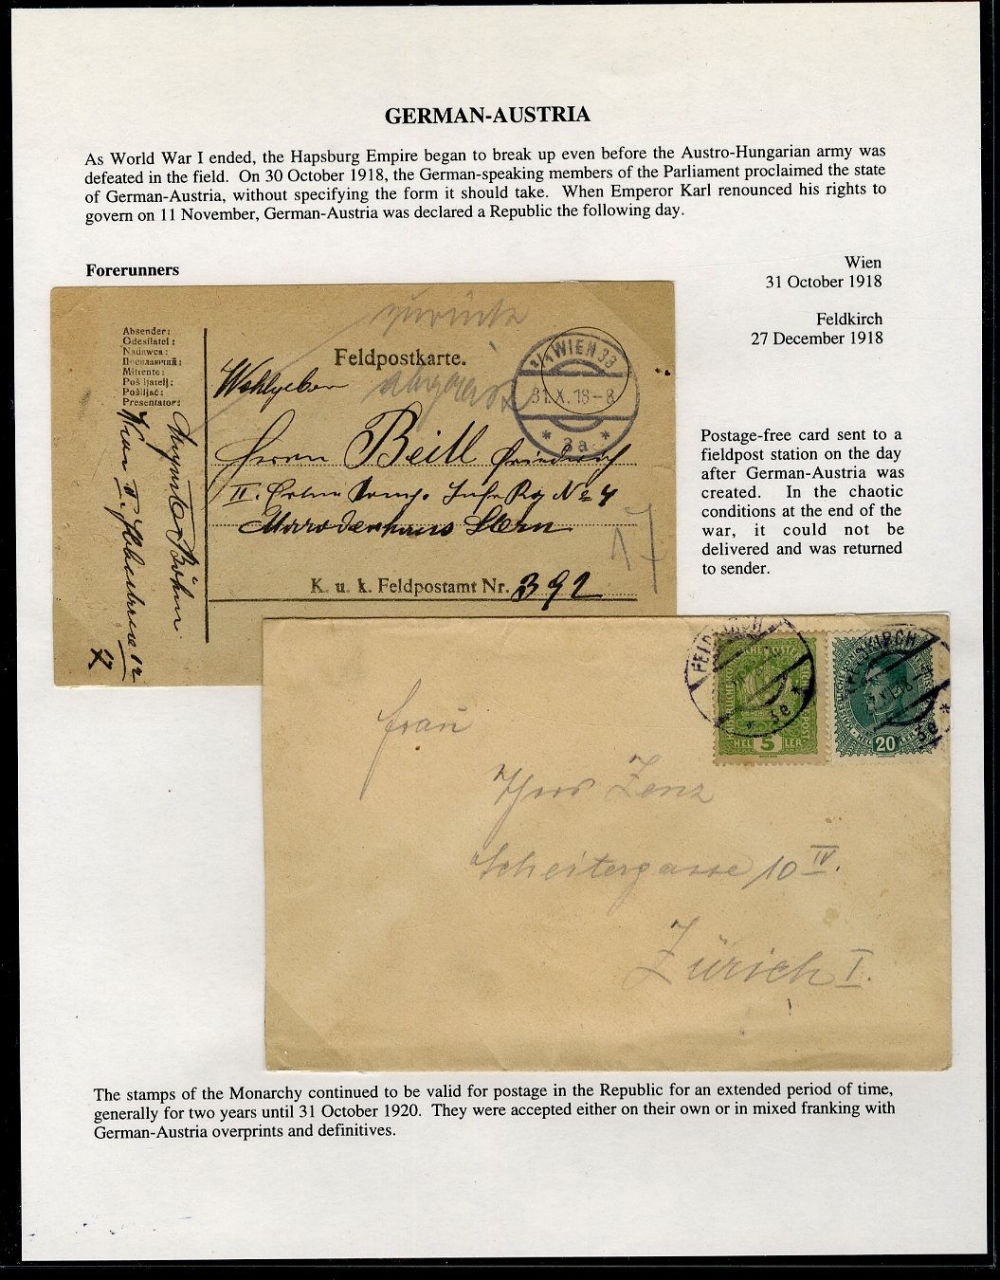 GERMAN-AUSTRIA
As World War I ended, the Hapsburg Empire began to break up even before the Austro-Hungarian army was
defeated in the field. On 30 October 1918, the German-speaking members of the Parliament proclaimed the state
of German-Austria, without specifying the form it should take. When Emperor Karl renounced his rights to
govern on 11 November, German-Austria was declared a Republic the following day.
Forerunners
Wien
31 October 1918
Feldkirch
27 December 1918
zurück
Absender:
Odesílatel:
Nadawca:
Mittente:
Pošiljatelj:
Pošiljač:
Presentator:
Feldpostkarte.
Wohlgeboren
WIEN 33
31.X.18-8
* 3a *
Herrn Beill Friedrich
Marodenhaus Stern
K. u. k. Feldpostamt Nr. 392
Böhm
Wien II.
Postage-free card sent to a
fieldpost station on the day
after German-Austria was
created. In the chaotic
conditions at the end of the
war, it could not be
delivered and was returned
to sender.
FELDKIRCH
* 3e *
HELLER
5
FELDKIRCH
20
3e *
Frau
Lenz
Scheitergasse 10 IV.
Zürich I.
The stamps of the Monarchy continued to be valid for postage in the Republic for an extended period of time,
generally for two years until 31 October 1920. They were accepted either on their own or in mixed franking with
German-Austria overprints and definitives.